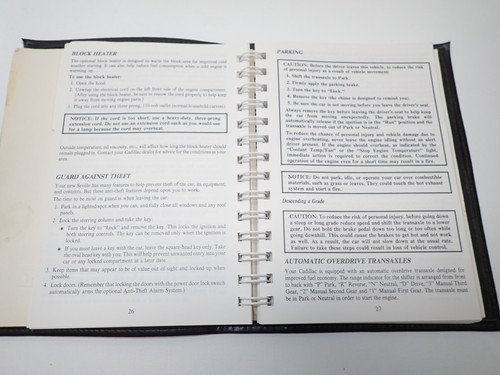 BLOCK HEATER
The optional block heater is designed to warm the block for improved cold
weather starting. It can also help reduce fuel consumption when a cold engine is
warming up.
To use the block heater:
1. Open the hood.
2. Unwrap the electrical cord on the left front side of the engine compartment.
(After using the block heater, be sure to rewrap the cord properly to help keep
it away from moving engine parts.)
3. Plug the cord into any three-prong, 110-volt outlet (normal household current).
NOTICE: If the cord is too short, use a heavy-duty, three-prong
extension cord. Do not use an extension cord such as you would use
for a lamp because the cord may overheat.
Outside temperature, oil viscosity, etc., will affect how long the block heater should
remain plugged in. Contact your Cadillac dealer for advice for the conditions in your
area.
GUARD AGAINST THEFT
Your new Seville has many features to help prevent theft of the car, its equipment,
and contents. But these anti-theft features depend upon you to work.
The time to be most on guard is when leaving the car:
1. Park in a lighted spot when you can, and fully close all windows and any roof
panels.
2. Lock the steering column and take the key:
• Turn the key to "Lock" and remove the key. This locks the ignition and
both steering controls. The key can be removed only when the ignition is
locked.
• If you must leave a key with the car, leave the square-head key only. Take
the oval head key with you. This will help prevent unwanted entry into your
car or any locked compartment at a later date.
3. Keep items that may appear to be of value out of sight and locked up when
possible.
4. Lock doors (Remember that locking the doors with the power door lock switch
automatically arms the optional Anti Theft Alarm System.)
26
PARKING
CAUTION: Before the driver leaves this vehicle, to reduce the risk
of personal injury as a result of vehicle movement:
1. Shift the transaxle to Park.
2. Firmly apply the parking brake.
3. Turn the key to "Lock."
4. Remove the key (the chime is designed to remind you).
5. Be sure the car is not moving before you leave the driver's seat.
Always remove the key before leaving the driver's seat to help keep
the car from moving unexpectedly. The parking brake will
automatically release if the ignition is in the "Run" position and the
transaxle is moved out of Park or Neutral.
To reduce the chance of personal injury and vehicle damage due to
engine overheating, never leave the engine idling without an alert
driver present. If the engine should overheat, as indicated by the
"Coolant Temp/Fan" or the "Stop Engine Temperature" light,
immediate action is required to correct the condition. Continued
operation of the engine even for a short time may result in a fire.
NOTICE: Do not park, idle, or operate your car over combustible
materials, such as grass or leaves. They could touch the hot exhaust
system and start a fire.
Descending a Grade
CAUTION: To reduce the risk of personal injury, before going down
a steep or long grade reduce speed and shift the transaxle to a lower
gear. Do not hold the brake pedal down too long or too often while
going downhill. This could cause the brakes to get hot and not work
as well. As a result, the car will not slow down at the usual rate.
Failure to take these steps could result in loss of vehicle control.
AUTOMATIC OVERDRIVE TRANSAXLES
Your Cadillac is equipped with an automatic overdrive transaxle designed for
improved fuel economy. The range indicator for the shifter is arranged from front
to back with "P" Park, "R" Reverse, "N" Neutral, "D" Drive, "3" Manual Third
Gear, "2" Manual Second Gear and "1" Manual First Gear. The transaxle must
be in Park or Neutral in order to start the engine.
27